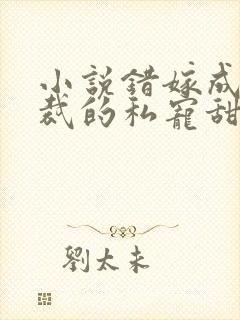 小說錯嫁成
裁的私寵甜
劉太未